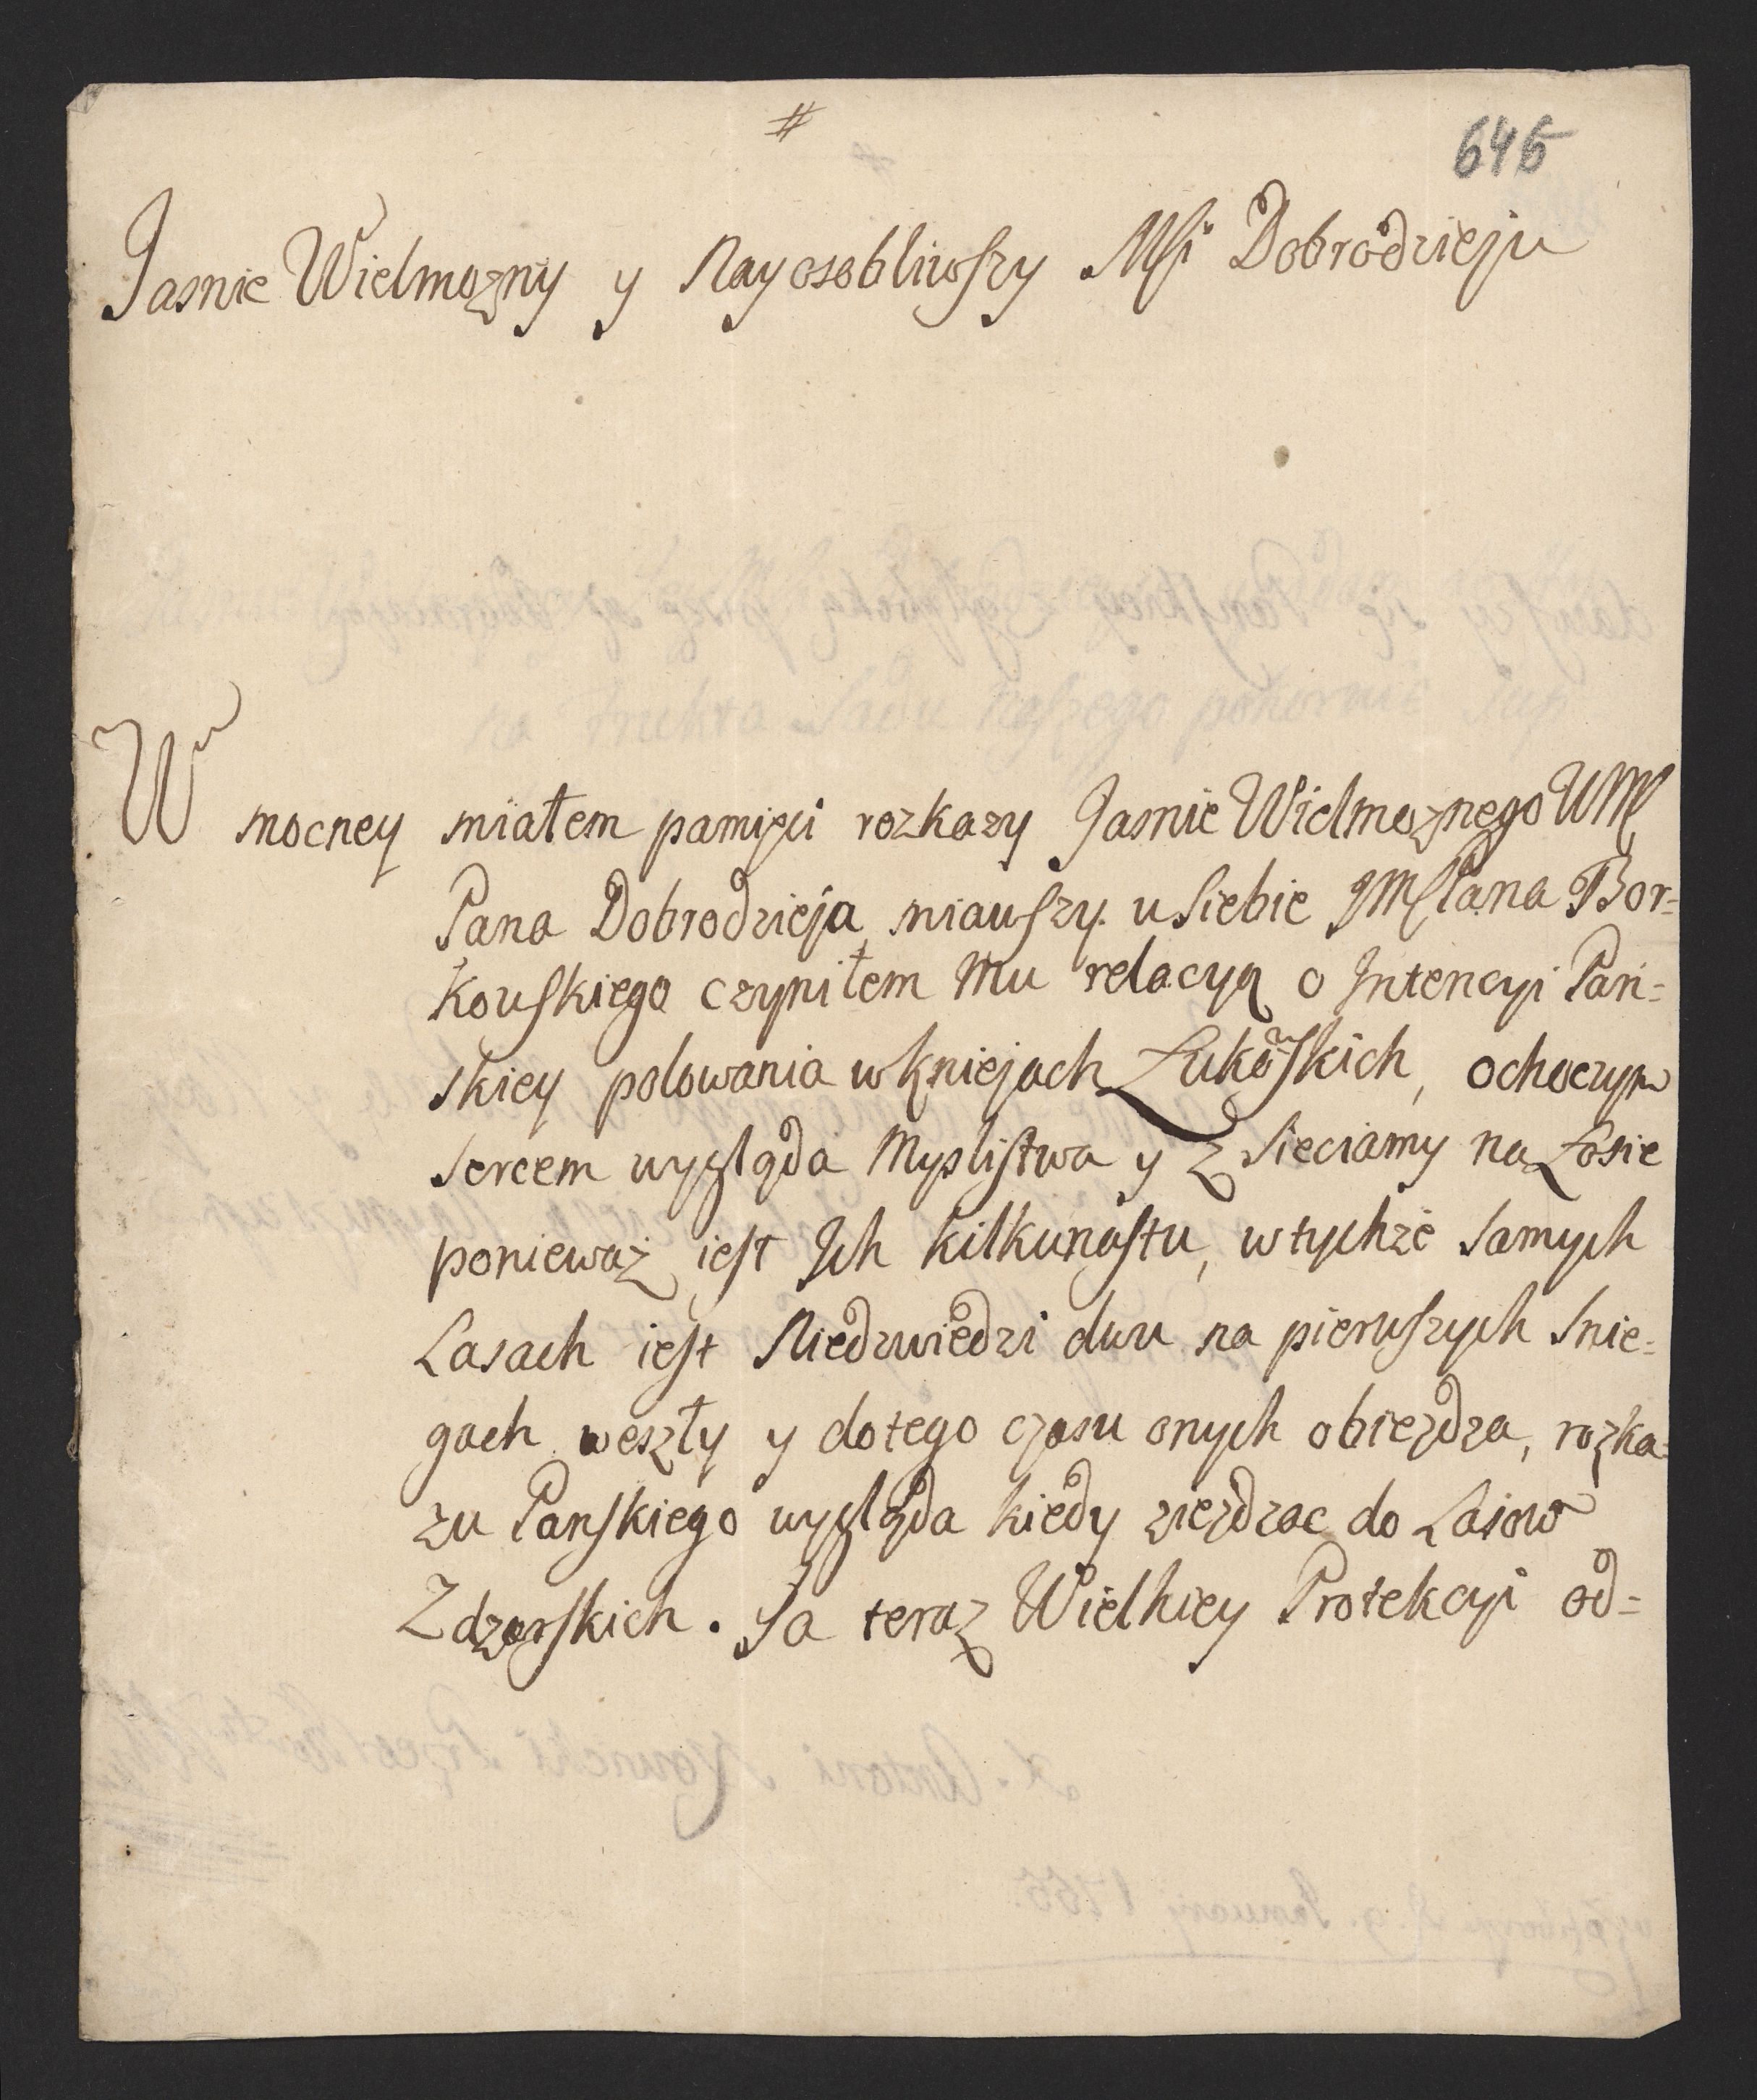 #
645
Jasnie Wielmozny y Nayosobliwszy Mśi Dobrodzieju
W mocney miałem pamięci rozkazy Jasnie Wielmoznego WM
Pana Dobrodzieja, miawszy u siebie JMśPana Bor=
kowskiego czyniłem Mu relacyą o Intencyi Pań=
skiey polowania w kniejach Łukowskich, ochoczym
sercem wygląda Myslistwa y z Sieciamy na Łosie
ponieważ iest Ich kilkunastu, w tychże samych
Lasach iest Niedzwiedzi dwu na pierwszych Snie=
gach weszły y do tego czasu onych obiezdza, rozka=
zu Panskiego wygląda kiedy ziezdzac do Lasow
Zdzarskich. Ja teraz Wielkiey Protekcyi od=